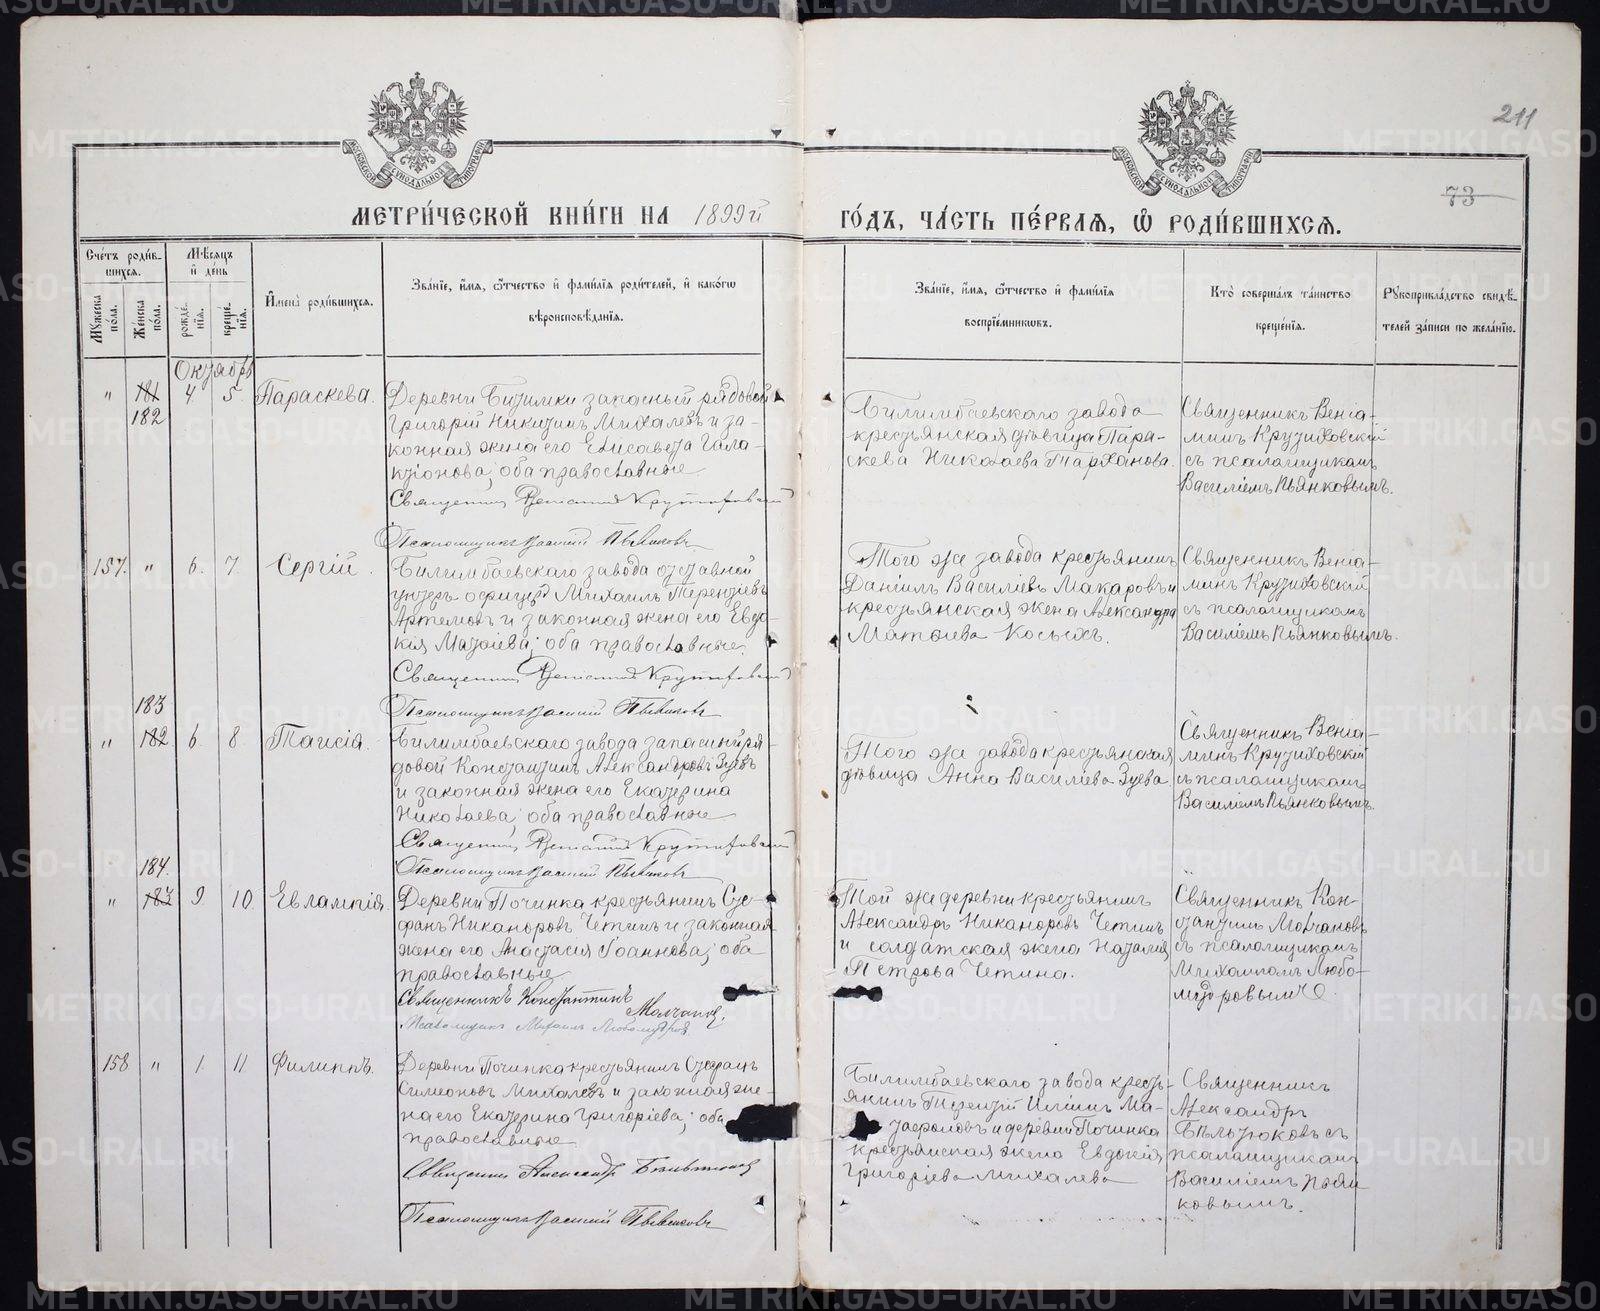 METRIKI.GASO-URAL.RU
211
73
МОСКОВСКОЙ СѴНОДАЛЬНОЙ ТИПОГРАФІИ
МОСКОВСКОЙ СѴНОДАЛЬНОЙ ТИПОГРАФІИ
МЕТРИ́ЧЕСКОЙ КНИ́ГИ НА 1899й ГО́ДЪ, ЧА́СТЬ ПЕ́РВАѦ, Ѽ РОДИ́ВШИХСѦ.
Сче́тъ роди́вшихсѧ.
Мꙋ́жеска по́ла.
Же́нска по́ла.
Мѣ́сѧцъ и҆ де́нь
рожде́нїѧ.
креще́нїѧ.
И҆мена̀ роди́вшихсѧ.
Зва́нїе, и҆́мѧ, ѻ҆́тчество и҆ фами́лїѧ роди́телей, и҆ како́гѡ
вѣроисповѣ́данїѧ.
Зва́нїе, и҆́мѧ, ѻ҆́тчество и҆ фами́лїѧ
воспрїе́мникѡвъ.
Кто̀ соверша́лъ та́инство
креще́нїѧ.
Рꙋкоприкла́дство свидѣ́-
телей за́писи по жела́нїю.
Октябрь
" 181 182 4 5. Параскева.
Деревни Битимки запасный рядовой
Григорій Никитинъ Михалевъ и за-
конная жена его Елисавета Гала-
ктіонова; оба православные
Священникъ Веніаминъ Крутиховскій
Псаломщикъ Василій Пьянковъ
Билимбаевскаго завода
крестьянская дѣвица Пара-
скева Николаева Тарханова.
Священникъ Веніа-
минъ Крутиховскій
съ псаломщикомъ
Василіемъ Пьянковымъ.
157. " 6. 7. Сергій.
Билимбаевскаго завода отставной
унтеръ офицеръ Михаилъ Терентьевъ
Артемовъ и законная жена его Евдо-
кія Матѳіева; оба православные.
Священникъ Веніаминъ Крутиховскій
Псаломщикъ Василій Пьянковъ
Того же завода крестьянинъ
Даніилъ Василіевъ Макаровъ и
крестьянская жена Александра
Матѳіева Косыхъ.
Священникъ Веніа-
минъ Крутиховскій
съ псаломщикомъ
Василіемъ Пьянковымъ.
" 183 182 6. 8. Таисія.
Билимбаевскаго завода запасный ря-
довой Константинъ Александровъ Зуевъ
и законная жена его Екатерина
Николаева; оба православные
Священникъ Веніаминъ Крутиховскій
Псаломщикъ Василій Пьянковъ
Того же завода крестьянская
дѣвица Анна Василіева Зуева.
Священникъ Веніа-
минъ Крутиховскій
съ псаломщикомъ
Василіемъ Пьянковымъ.
" 184. 183 9 10. Евлампія.
Деревни Починка крестьянинъ Сте-
фанъ Никаноровъ Четинъ и законная
жена его Анастасія Іоаннова; оба
православные
Священникъ Константинъ
Молчановъ.
Псаломщикъ Михаилъ Любомудровъ
Той же деревни крестьянинъ
Александръ Никаноровъ Четинъ
и солдатская жена Наталія
Петрова Четина.
Священникъ Кон-
стантинъ Молчановъ
съ псаломщикомъ
Михаиломъ Любо-
мудровымъ.
158 " 1. 11 Филиппъ.
Деревни Починка крестьянинъ Стефанъ
Симеоновъ Михалевъ и законная же-
на его Екатерина Григоріева; оба
православные
Священникъ Александръ Бѣльтюковъ
Псаломщикъ Василій Пьянковъ
Билимбаевскаго завода кресть-
янинъ Терентій Иліинъ Ма-
и деревни Починка
крестьянская жена Евдокія
Григоріева Михалева
Священникъ
Александръ
Бѣльтюковъ съ
псаломщикомъ
Василіемъ Пьян
ковымъ.